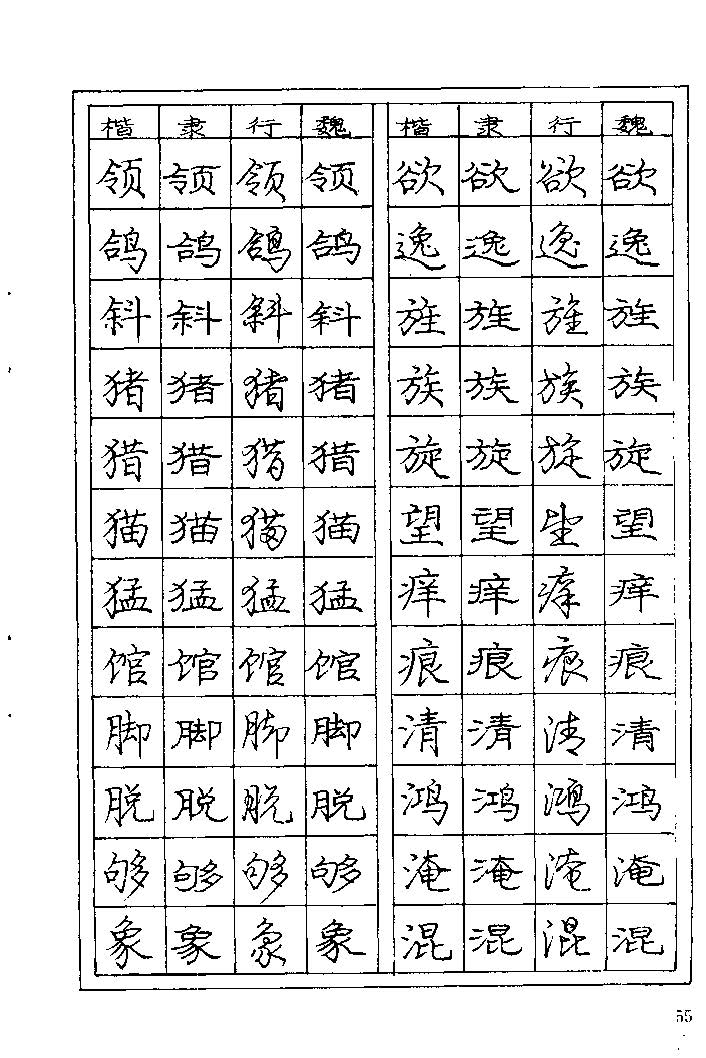 楷 隶 行 魏 楷 隶 行 魏
领 领 领 领 欲 欲 欲 欲
鸽 鸽 鸽 鸽 逸 逸 逸 逸
斜 斜 斜 斜 旌 旌 旌 旌
猪 猪 猪 猪 族 族 族 族
猎 猎 猎 猎 旋 旋 旋 旋
猫 猫 猫 猫 望 望 望 望
猛 猛 猛 猛 痒 痒 痒 痒
馆 馆 馆 馆 痕 痕 痕 痕
脚 脚 脚 脚 清 清 清 清
脱 脱 脱 脱 鸿 鸿 鸿 鸿
够 够 够 够 淹 淹 淹 淹
象 象 象 象 混 混 混 混
55